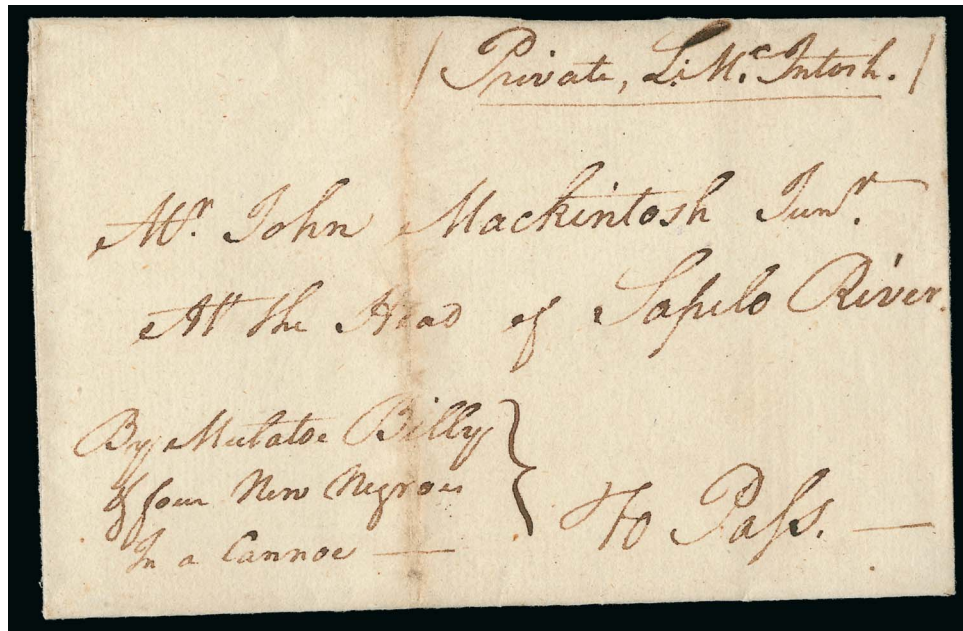 / Private, L: McIntosh. /
Mr. John Mackintosh Junr.
At the Head of Sapelo River
By Mulatoe Billy
& four New Negroes
In a Cannoe —
} To Pass. —